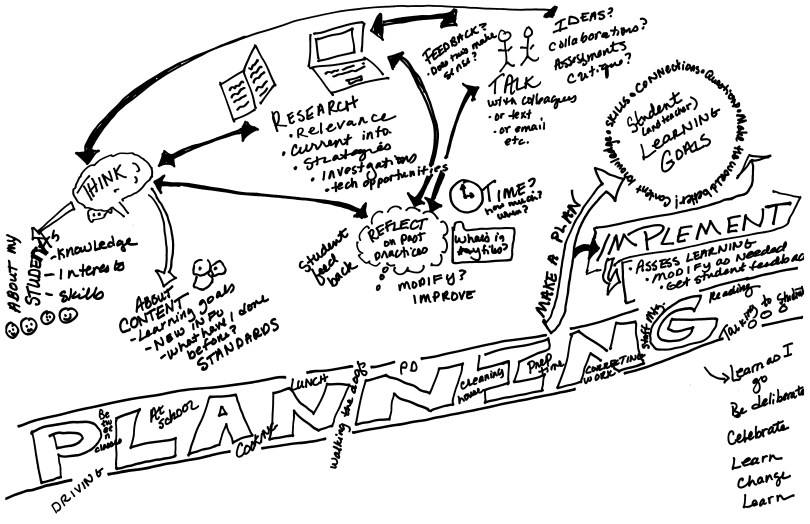 FEEDBACK?
• Does this make
sense?
IDEAS?
Collaborations?
Assessments
Critique?
TALK
with colleagues
• or text
• or email
etc.
RESEARCH
• Relevance
• Current info
• Strategies
• Investigations
• tech opportunities
THINK
ABOUT MY
STUDENTS
- Knowledge
- Interests
- Skills
ABOUT
CONTENT
- Learning goals
- NEW INFO
- What have I done
before?
STANDARDS
Student
feed
back
REFLECT
on past
practices
MODIFY?
IMPROVE
TIME?
how much?
when?
What's in
my files?
MAKE A PLAN
Content Knowledge • SKILLS • CONNECTIONS • Questions • Make the world better!
Student
(and teacher)
LEARNING
GOALS
IMPLEMENT
• ASSESS LEARNING
• MODIFY as needed
• Get student feedback
PLANNING
DRIVING
Between
classes
AT
SCHOOL
COOKING
LUNCH
Walking the dogs
PD
cleaning
house
Prep
time
CORRECTING
WORK
Staff Mtg.
Reading
Talking to Students
Learn as I
go
Be deliberate
Celebrate
Learn
Change
Learn